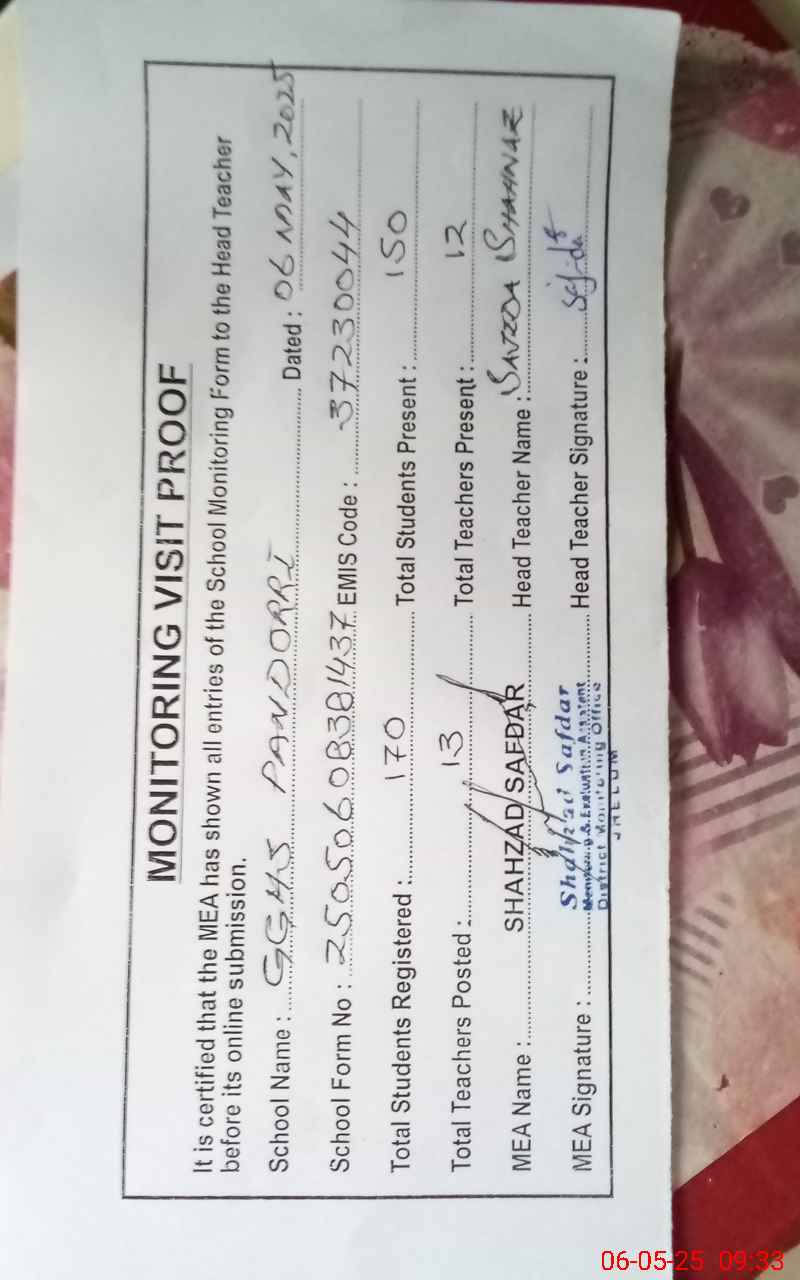 MONITORING VISIT PROOF
It is certified that the MEA has shown all entries of the School Monitoring Form to the Head Teacher
before its online submission.
School Name : GGHS PANDORRI Dated : 06 MAY, 2025
School Form No : 25050608381437 EMIS Code : 37230044
Total Students Registered : 170 Total Students Present : 150
Total Teachers Posted : 13 Total Teachers Present : 12
MEA Name : SHAHZAD SAFDAR Head Teacher Name : SHAHNAZ
MEA Signature : Head Teacher Signature :
Shahzad Safdar
Monitoring & Evaluation Assistent
District Monitoring Office
JHELUM
06-05-25 09:33